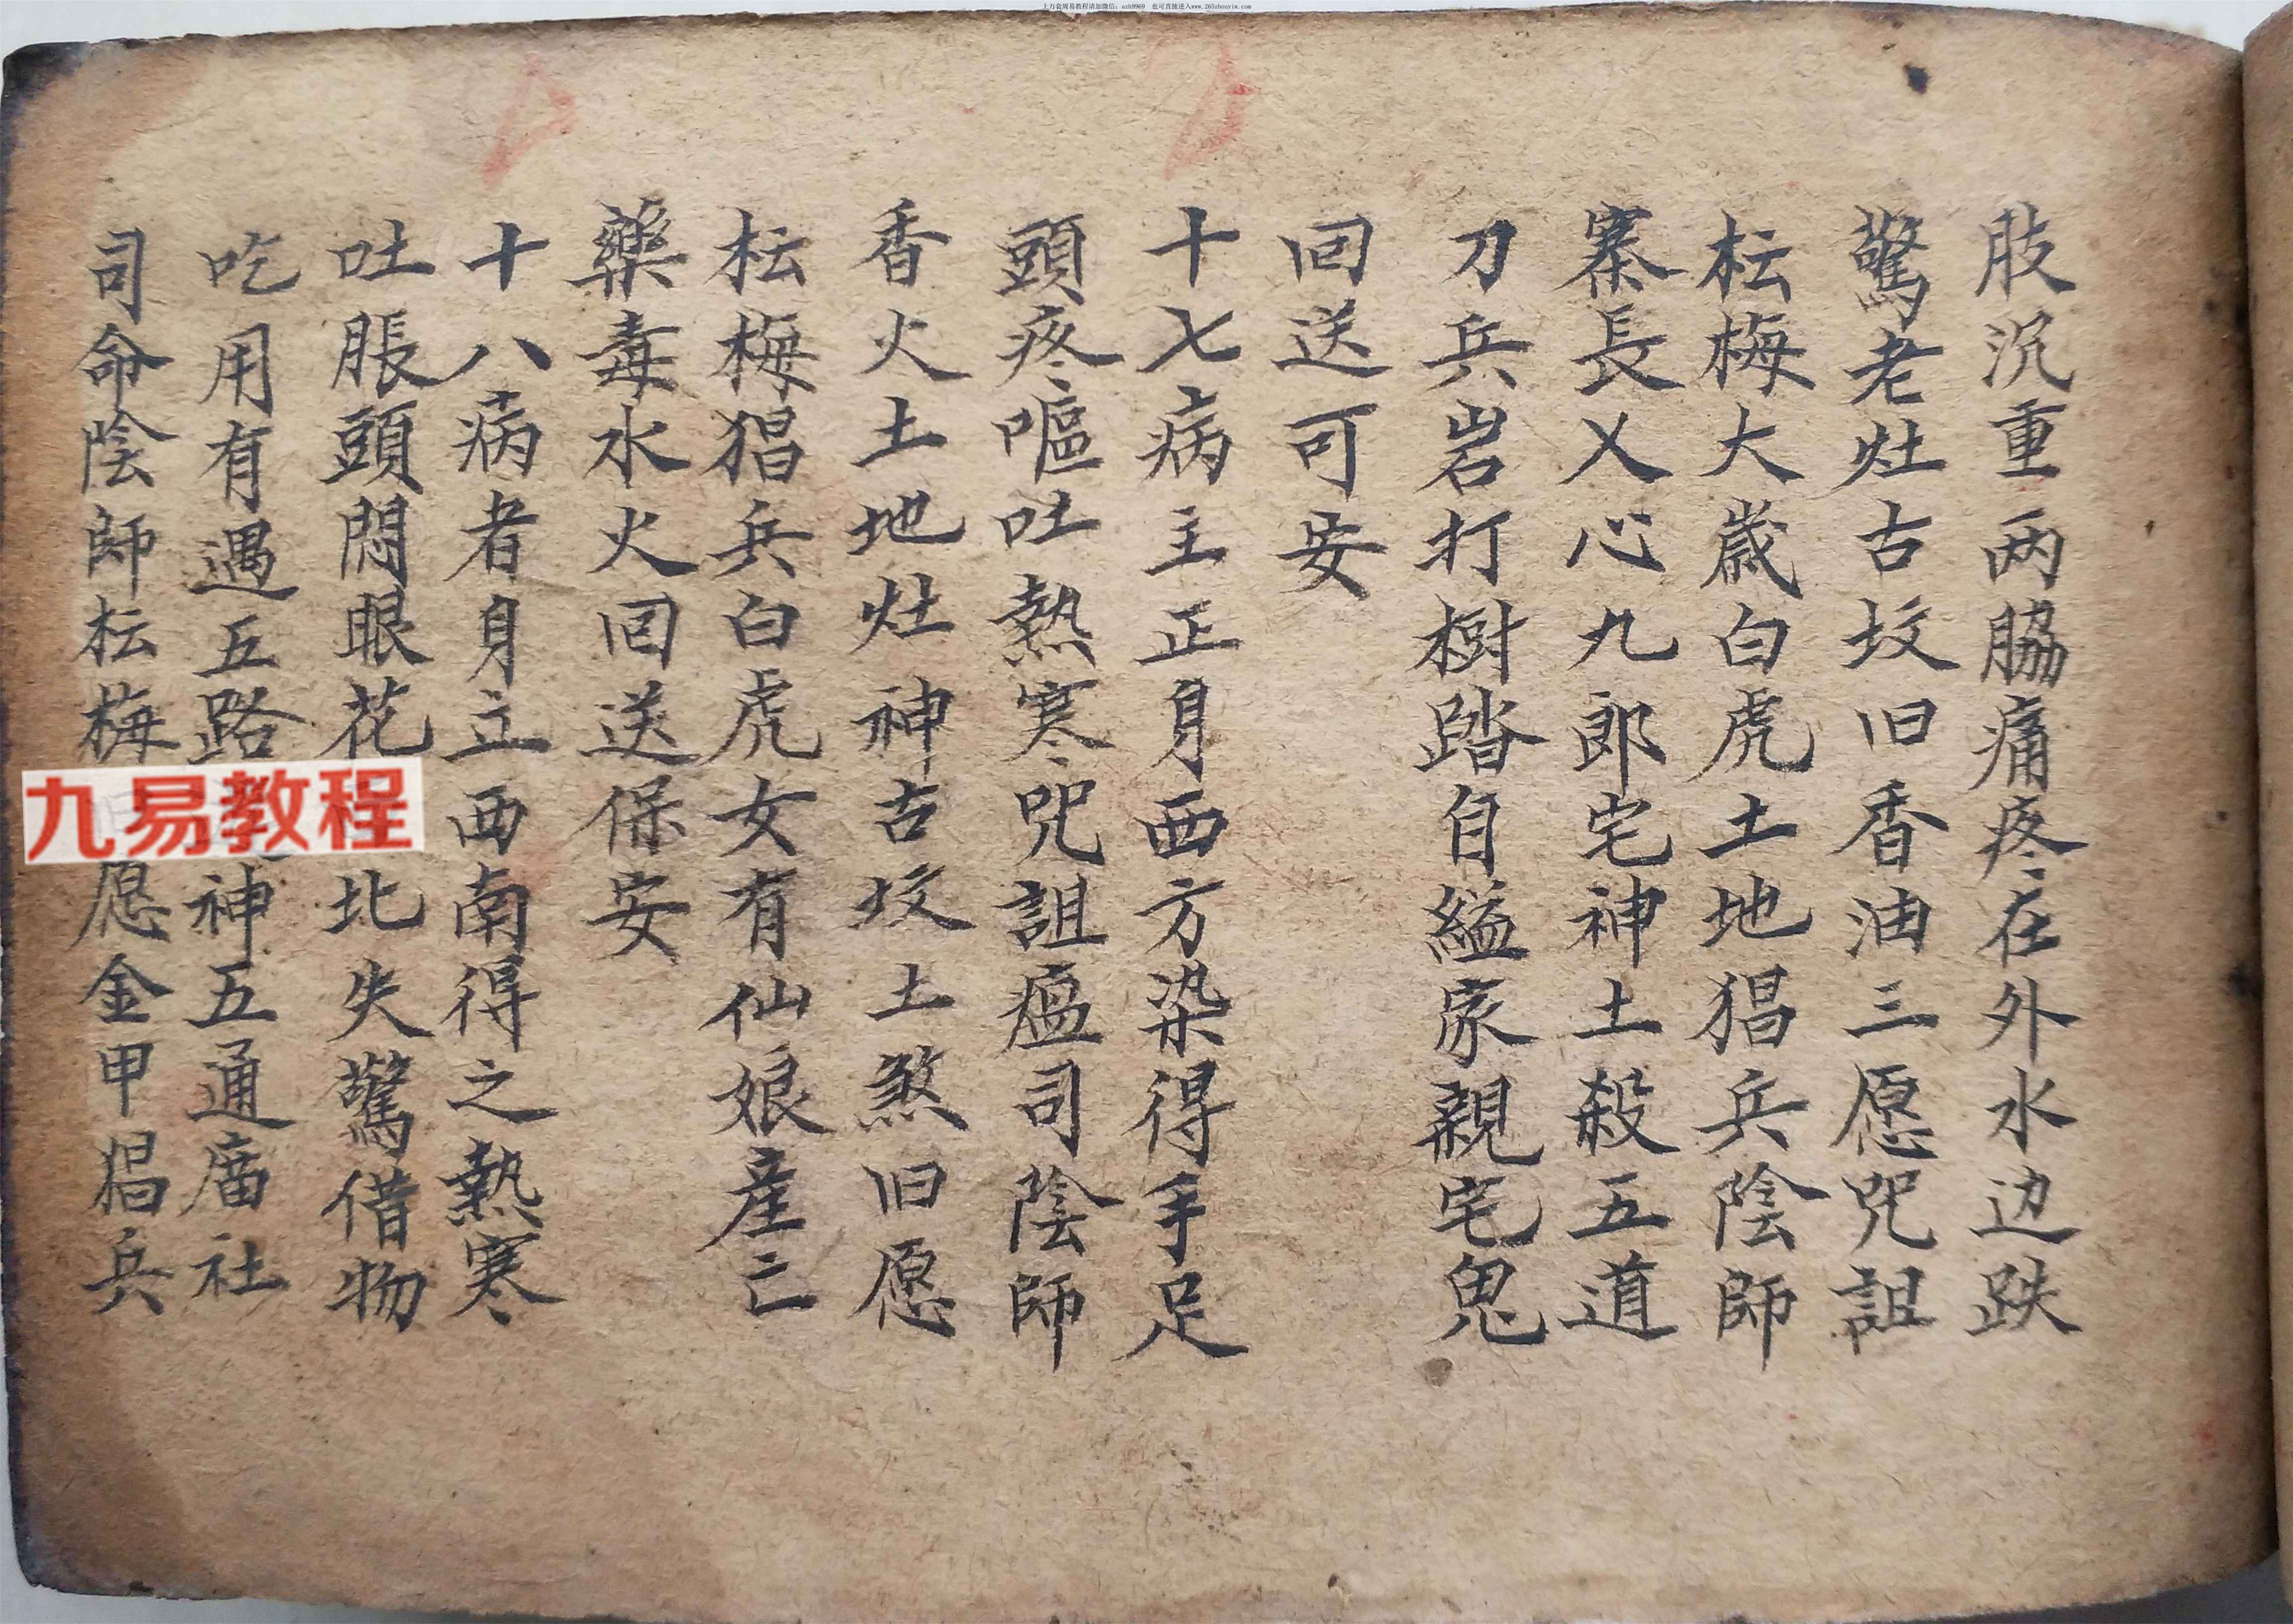 上万套周易教程请加微信：axh9969 也可直接进入www.265zhouyiw.com
肢沉重两脇痛疼在外水边跌
驚老灶古坟旧香油三愿咒詛
枟梅大歲白虎土地猖兵陰師
寨長乂心九郎宅神土殺五道
刀兵岩打樹踏自縊家親宅鬼
回送可安
十七病主正身西方染得手足
頭疼嘔吐熱寒咒詛瘟司陰師
香火土地灶神古坟土煞旧愿
枟梅猖兵白虎女有仙娘産亡
藥毒水火回送保安
十八病者身立西南得之熱寒
吐脹頭悶眼花北失驚借物
吃用有遇五路神五通廟社
司命陰師枟梅愿金甲猖兵
九易教程